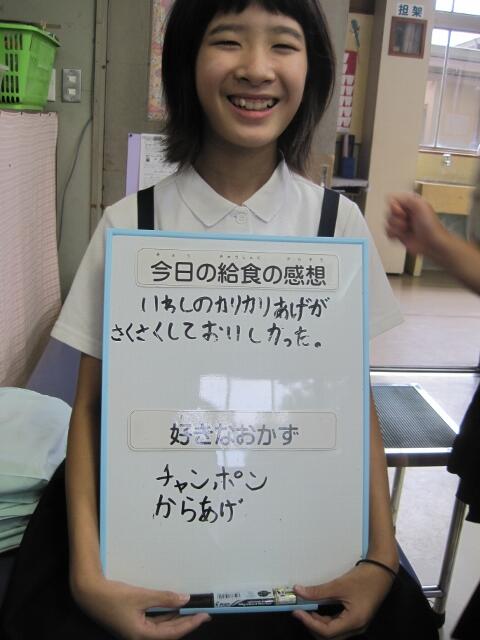 担架
今日の給食の感想
いわしのカリカリあげが
さくさくしておいしかった。
好きなおかず
チャンポン
からあげ